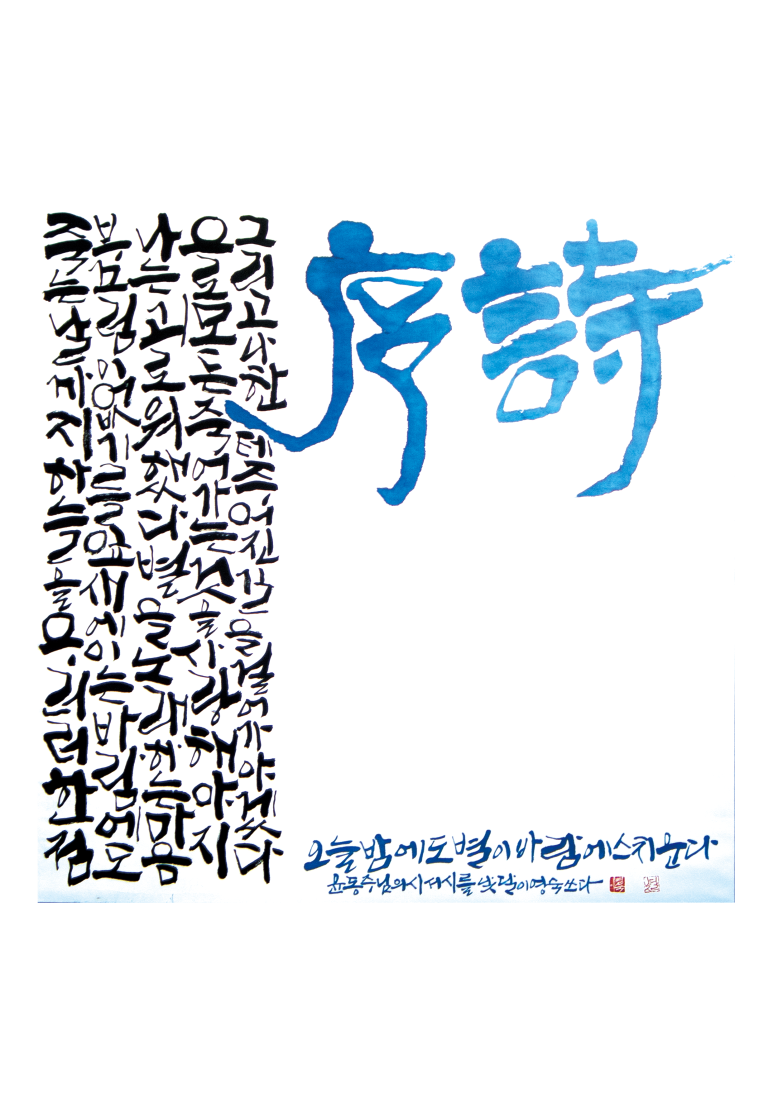 序詩
죽는날까지하늘을우러러한점
부끄럼이없기를잎새에이는바람에도
나는괴로워했다별을노래하는마음
으로모든죽어가는것을사랑해야지
그리고나한테주어진길을걸어가야겠다
오늘밤에도별이바람에스치운다
윤동주님의시서시를낮달이영숙쓰다